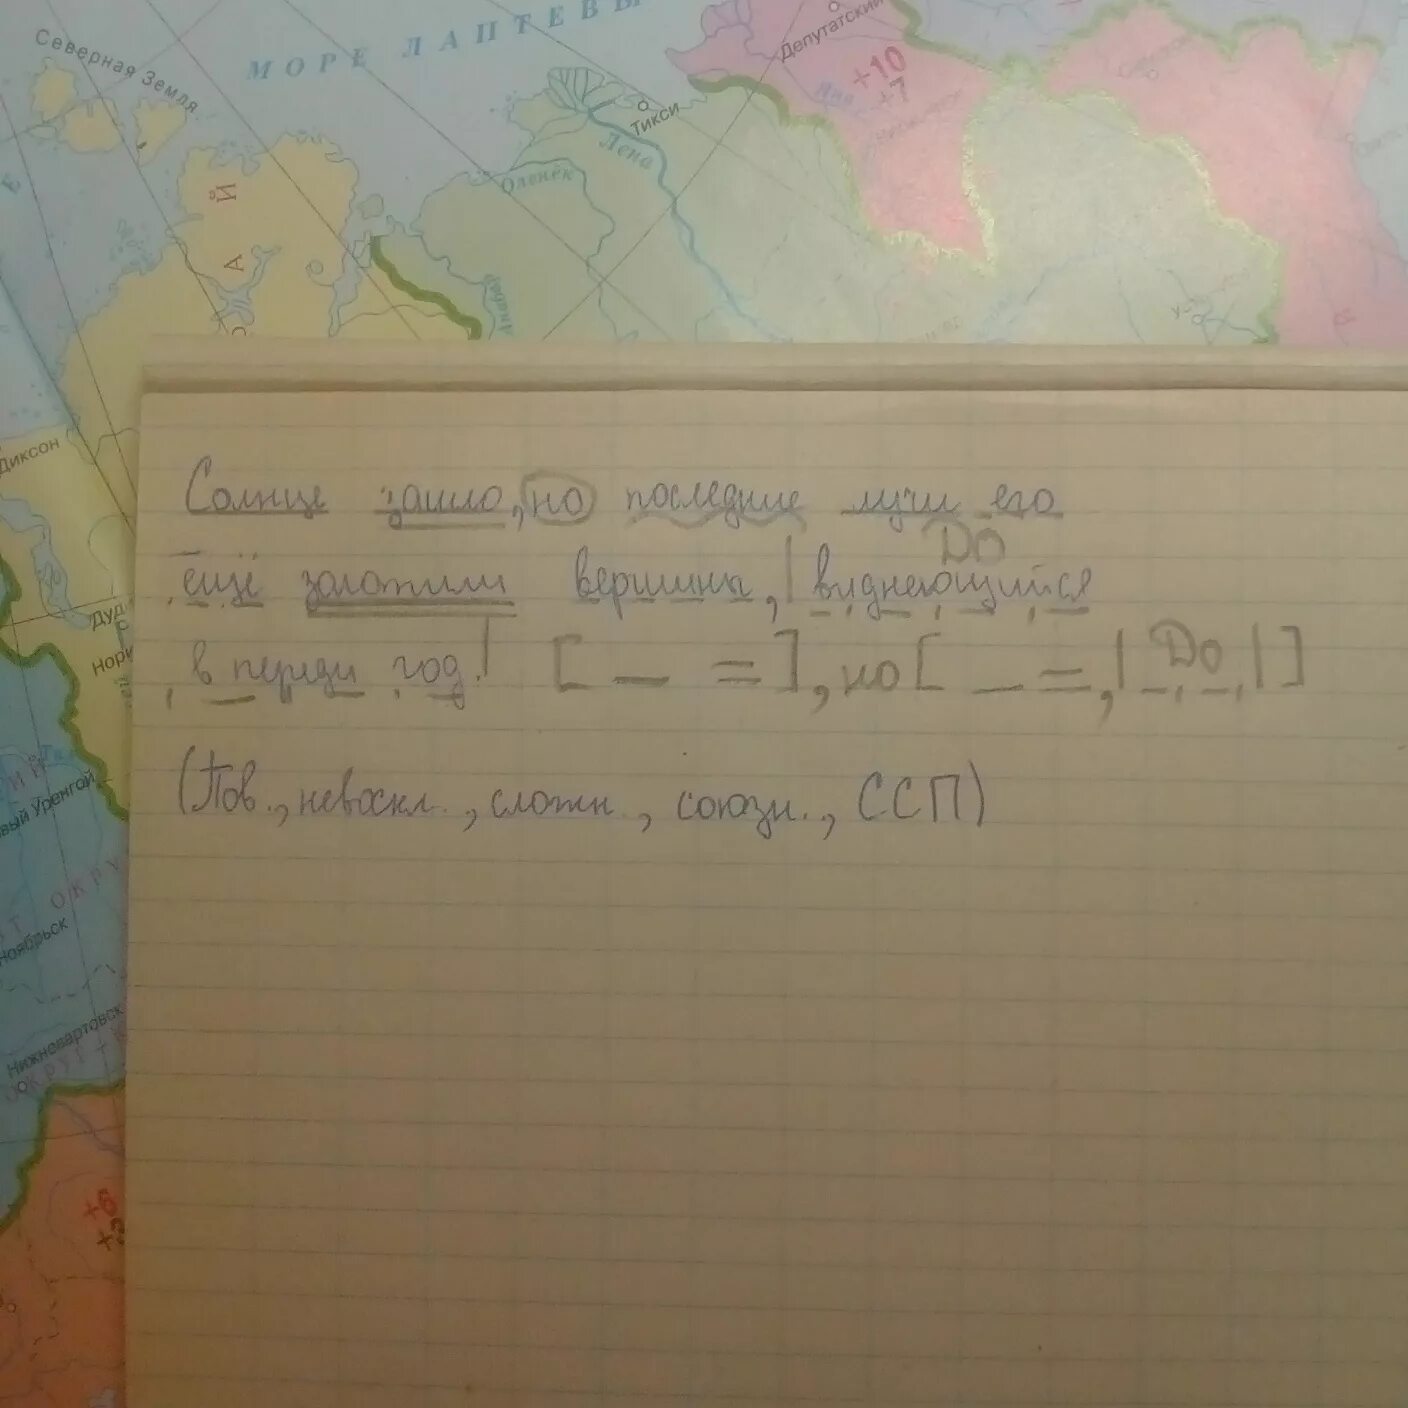 Северная Земля
МОРЕ ЛАПТЕВЫ
Депутатский
+10
+7
Яна
Тикси
Лена
Оленёк
Анабар
АЙ
Диксон
Солнце зашло, но последние лучи его
ДО
ещё золотили вершины, | виднеющийся
в переди год. | [ — = ], но [ — =, | ДО | ]
(Пов., невоскл., сложн., союзн., ССП)
Дуд
Нори
вый Уренгой
ОКРУ
Ноябрьск
Нижневартовск
ОКРУГ
+6